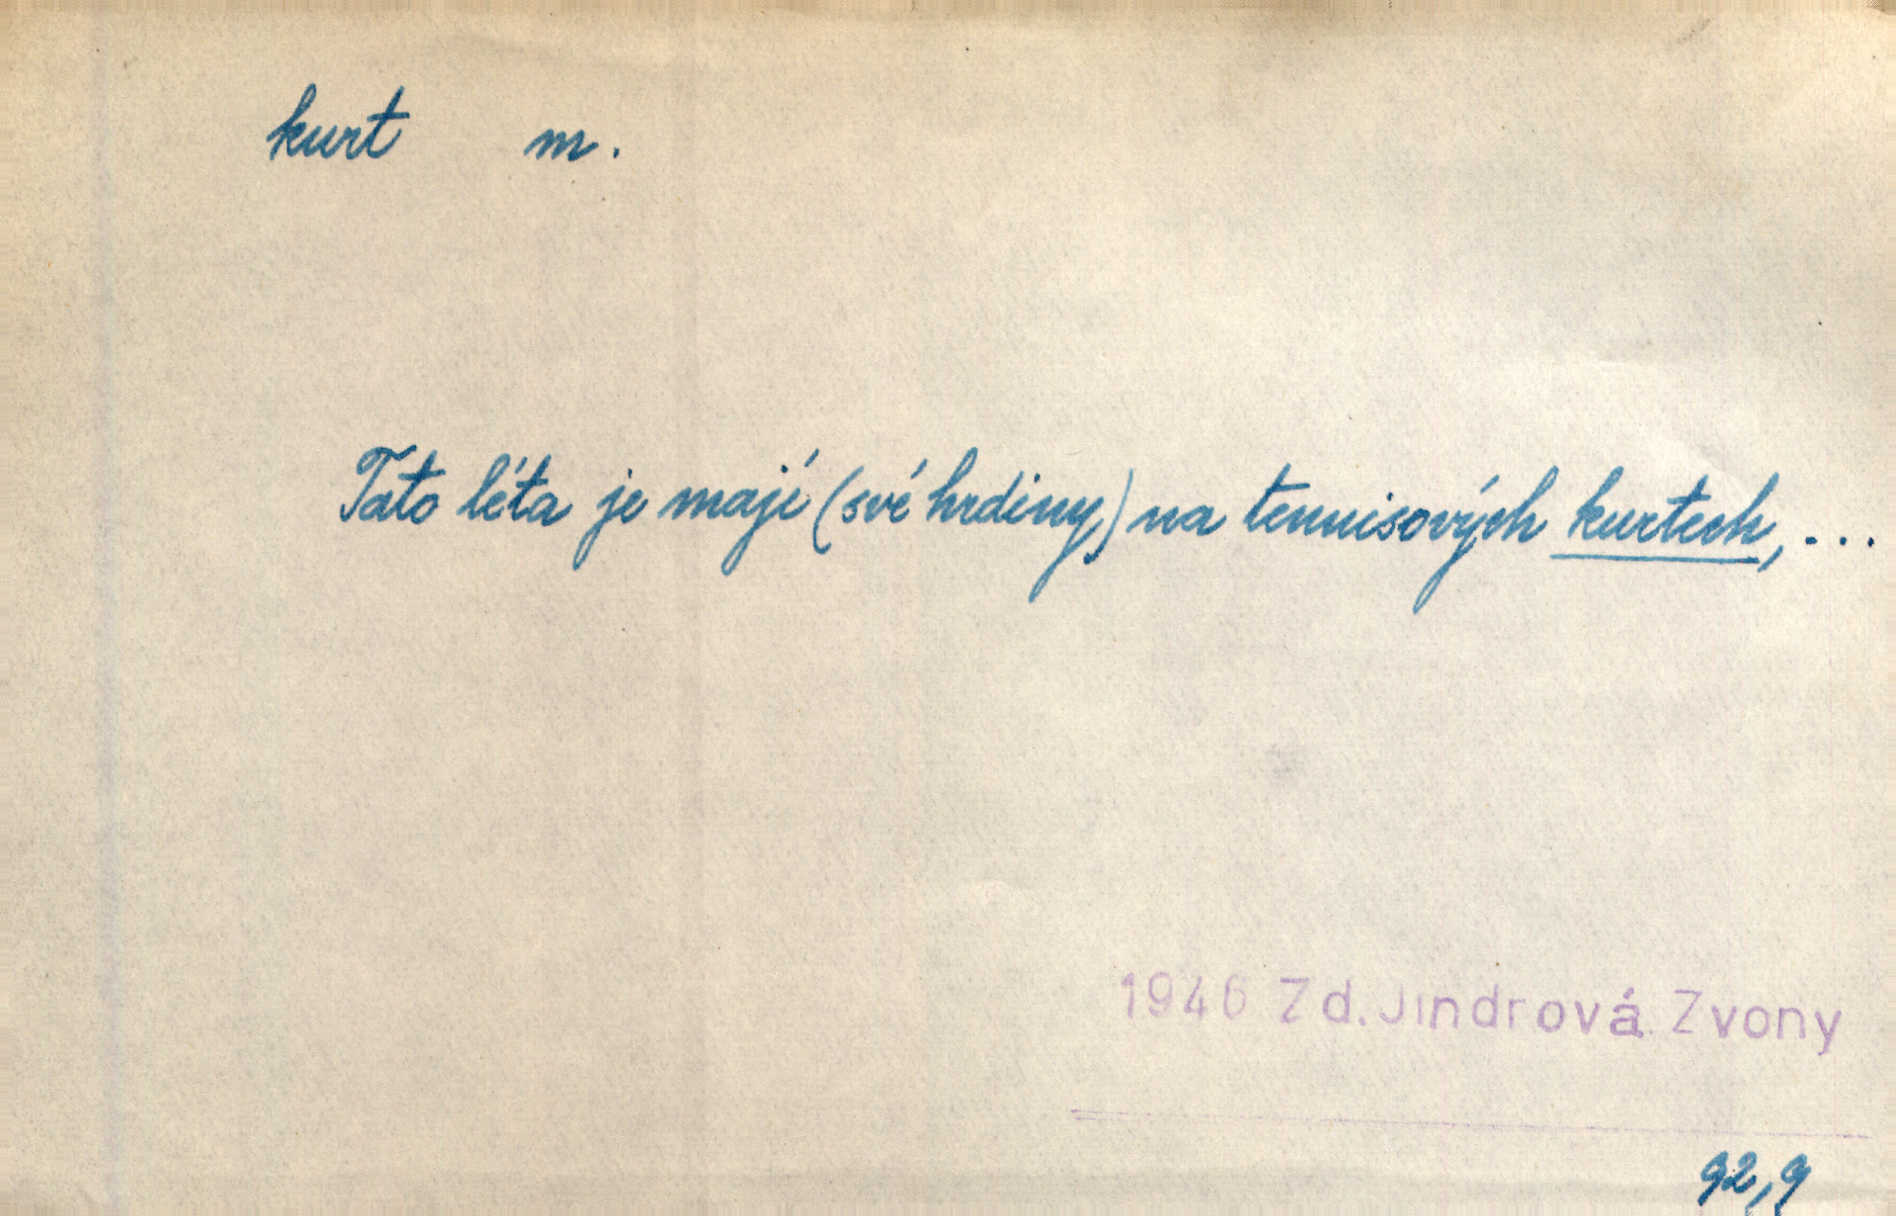 kurt m.
Tato léta je mají (své hrdiny) na tennisových kurtech, ...
1946 Zd. Jindrová Zvony
92,9